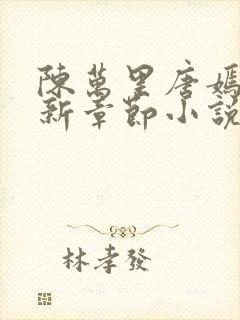 陳萬里唐嫣
新章節小說
林孝發